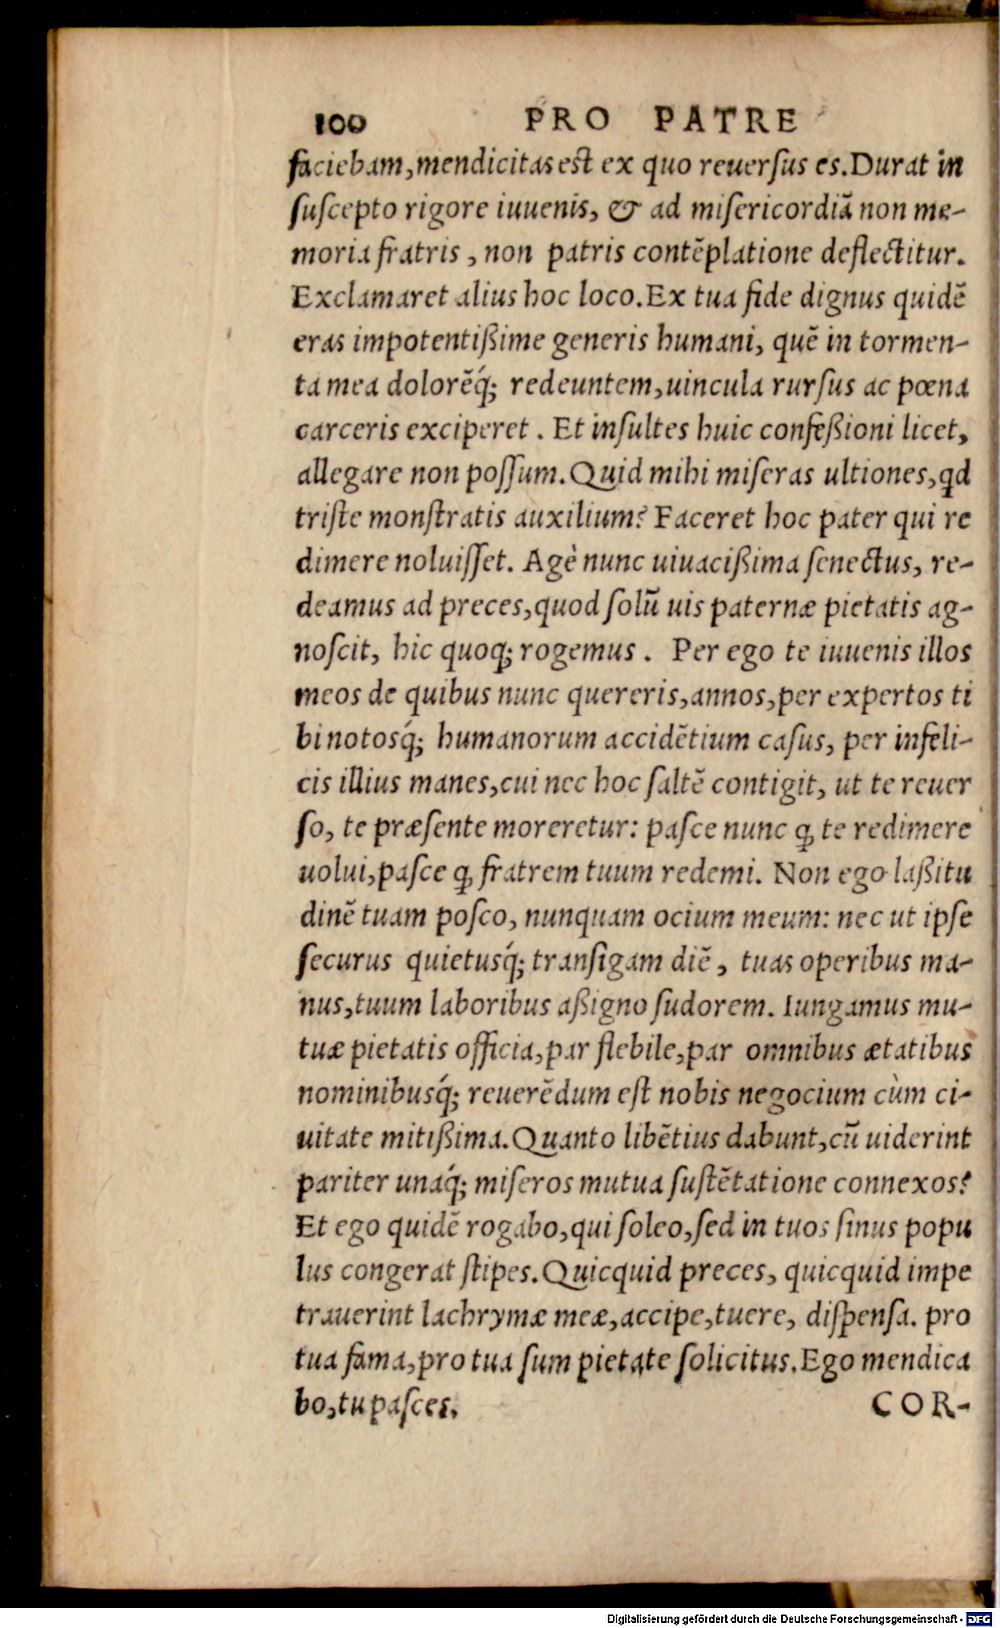 100 PRO PATRE
faciebam, mendicitas est ex quo reuersus es. Durat in
suscepto rigore iuuenis, & ad misericordiã non me-
moria fratris, non patris contẽplatione deflectitur.
Exclamaret alius hoc loco. Ex tua fide dignus quidẽ
eras impotentißime generis humani, quẽ in tormen-
ta mea dolorẽq́; redeuntem, uincula rursus ac pœna
carceris exciperet. Et insultes huic confeßioni licet,
allegare non possum. Quid mihi miseras ultiones, qd
triste monstratis auxilium? Faceret hoc pater qui re
dimere noluisset. Agè nunc uiuacißima senectus, re-
deamus ad preces, quod solũ uis paternæ pietatis ag-
noscit, hic quoq; rogemus. Per ego te iuuenis illos
meos de quibus nunc quereris, annos, per expertos ti
bi notosq́; humanorum accidẽtium casus, per infeli-
cis illius manes, cui nec hoc saltẽ contigit, ut te reuer
so, te præsente moreretur: pasce nunc ꝙ te redimere
uolui, pasce ꝙ fratrem tuum redemi. Non ego laßitu
dinẽ tuam posco, nunquam ocium meum: nec ut ipse
securus quietusq́; transigam diẽ, tuas operibus ma-
nus, tuum laboribus aßigno sudorem. Iungamus mu-
tuæ pietatis officia, par flebile, par omnibus ætatibus
nominibusq́; reuerẽdum est nobis negocium cùm ci-
uitate mitißima. Quanto libẽtius dabunt, cũ uiderint
pariter unaq́; miseros mutua sustẽtatione connexos?
Et ego quidẽ rogabo, qui soleo, sed in tuos sinus popu
lus congerat stipes. Quicquid preces, quicquid impe
trauerint lachrymæ meæ, accipe, tuere, dispensa. pro
tua fama, pro tua sum pietate solicitus. Ego mendica
bo, tu pasces. COR-
Digitalisierung gefördert durch die Deutsche Forschungsgemeinschaft - DFG